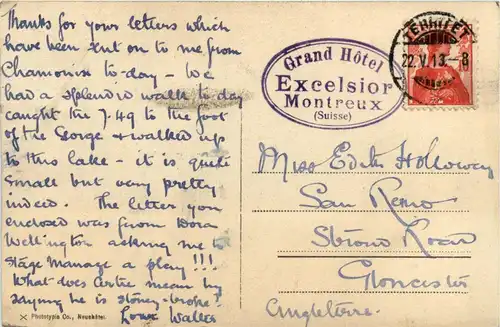 Thanks for your letters which
have been sent on to me from
Chamonix to-day - We
had a splendid walk to day
caught the 7.49 to the foot
of the Gorge & walked up
to this lake - it is quite
small but very pretty
indeed. The letter you
enclosed was from Dora
Wellington asking me to
Stage Manage a play!!!
What does Artie mean by
saying he is stoney-broke?
Love Walter
Phototypie Co., Neuchâtel.
Grand Hôtel
Excelsior
Montreux
(Suisse)
TERRITET
22.V.13.-8
Miss Edith Holloway
San Remo
Stroud Road
Gloucester
Angleterre.